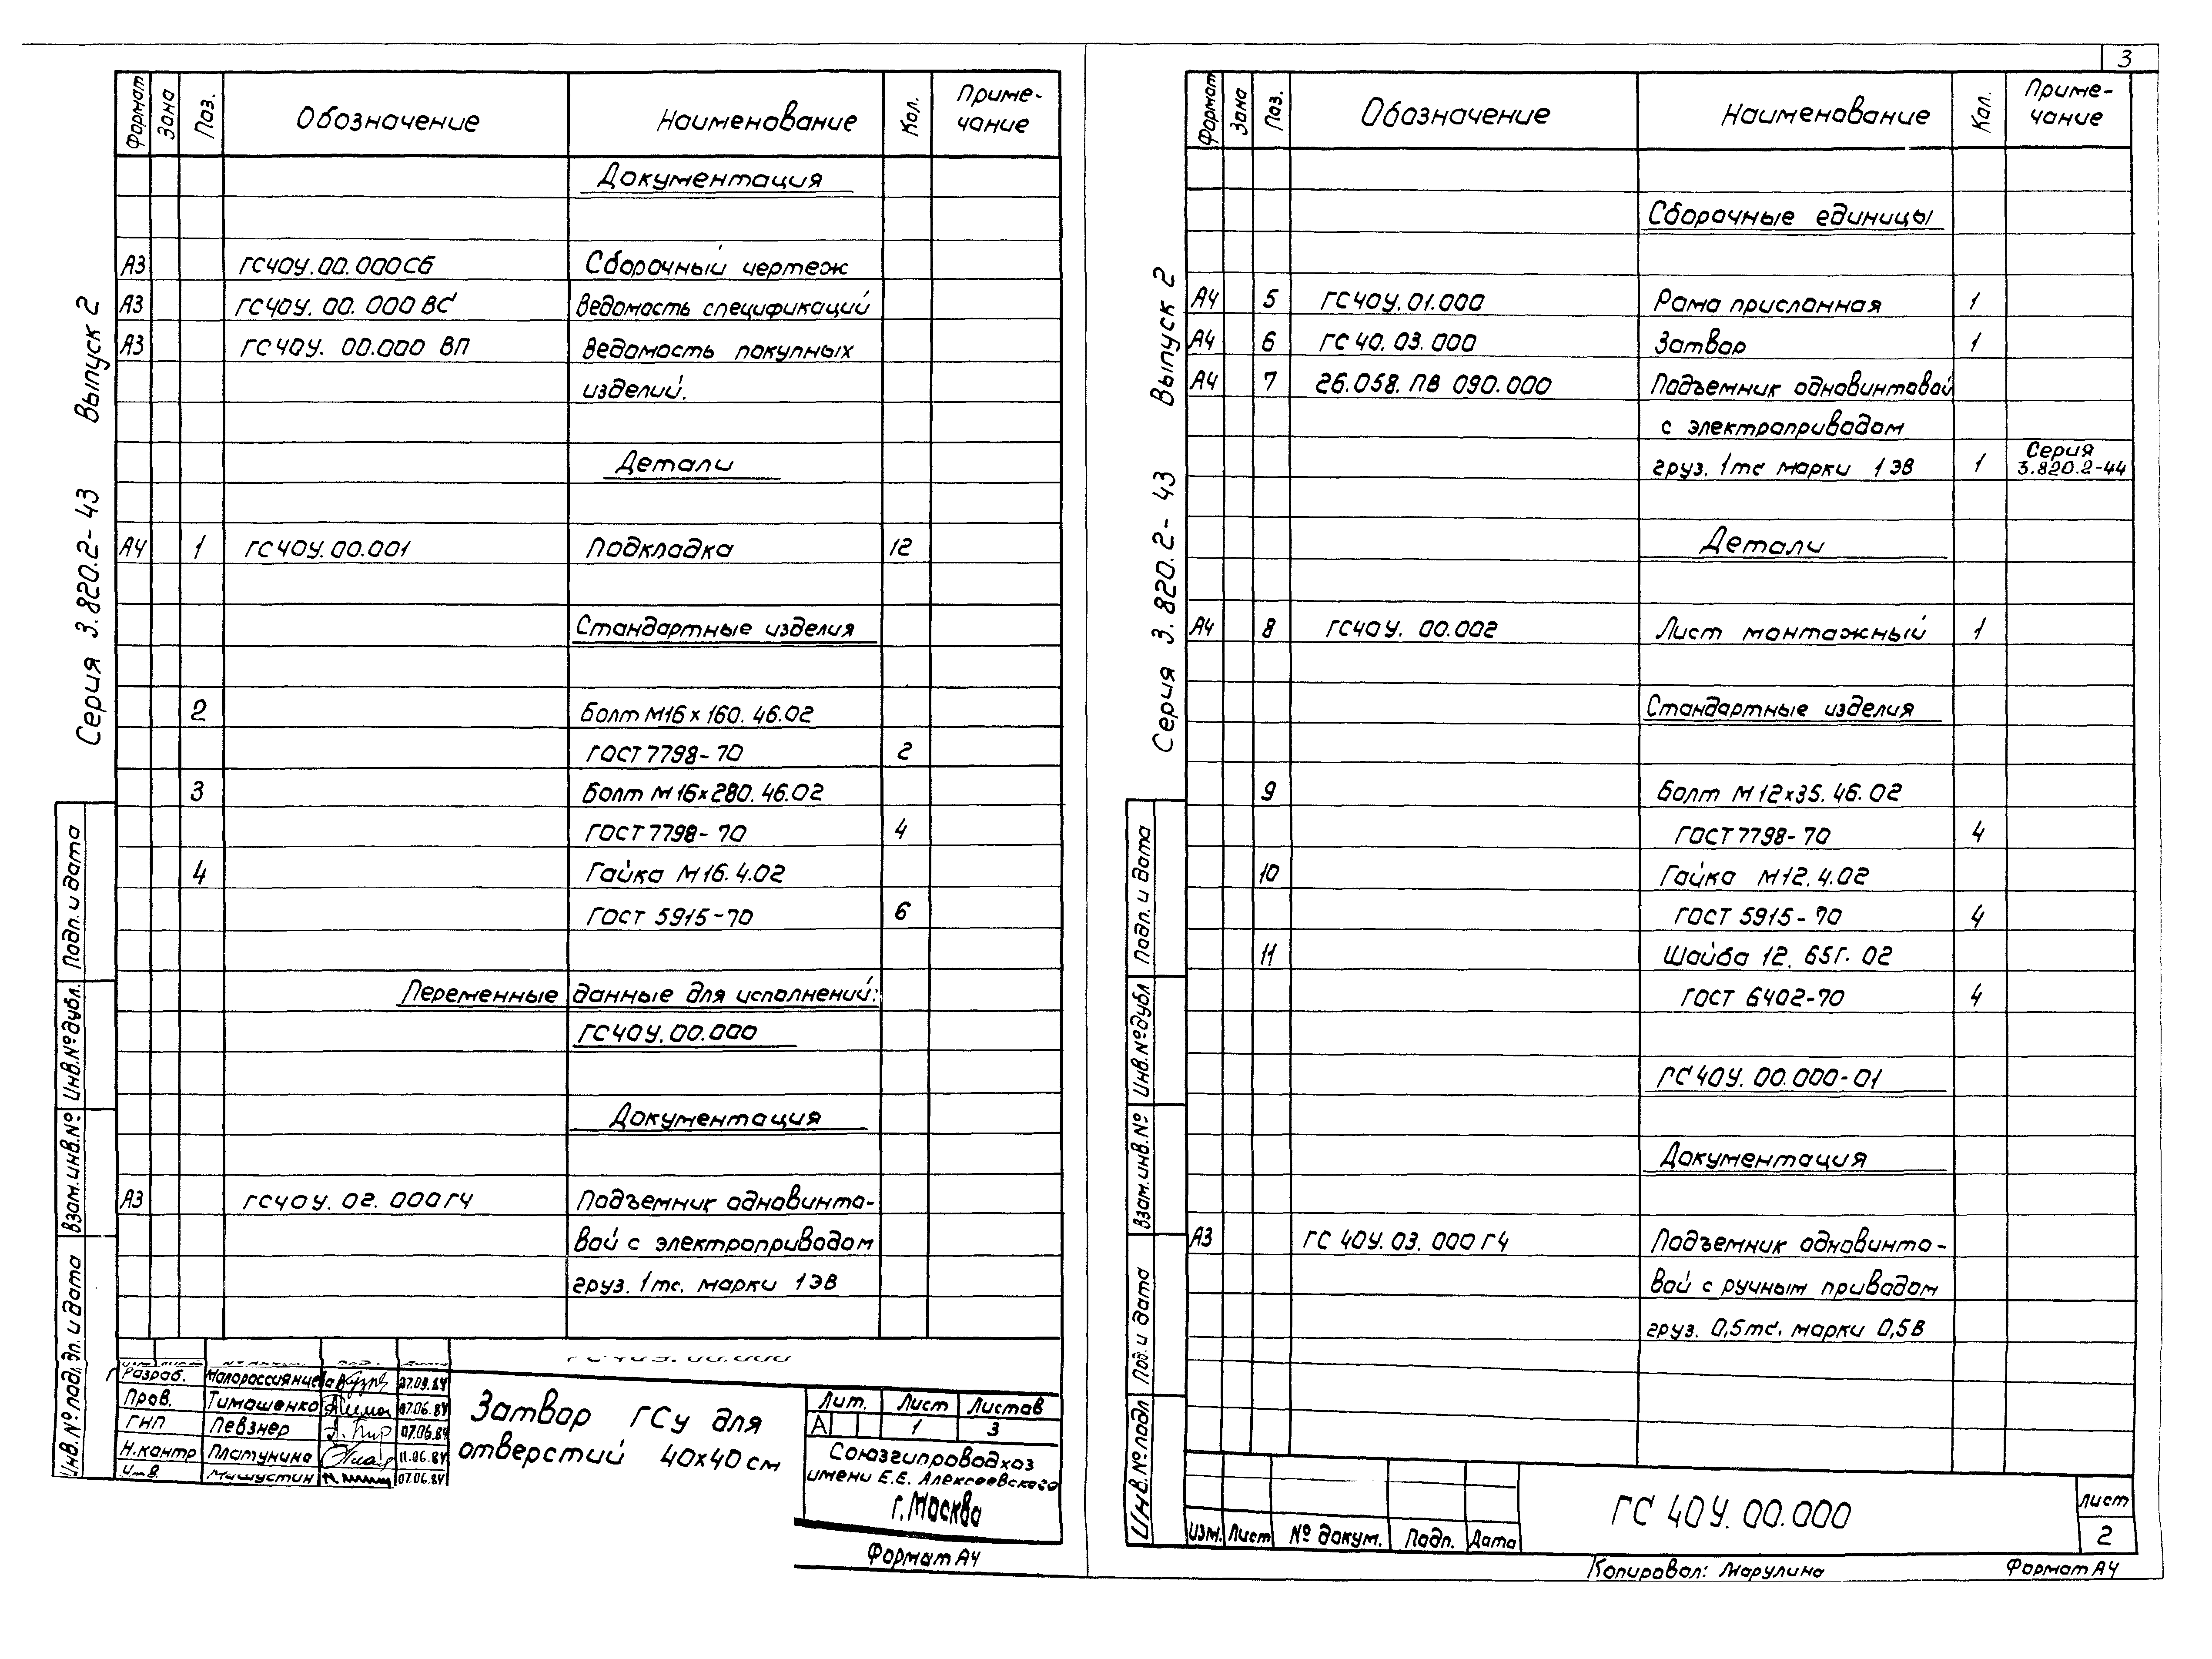 3
Серия 3.820.2-43 Выпуск 2
Формат Зона Поз. Обозначение Наименование Кол. Приме-
чание
Документация
А3 ГС40У.00.000СБ Сборочный чертеж
А3 ГС40У.00.000 ВС Ведомость спецификаций
А3 ГС40У.00.000 ВП Ведомость покупных
изделий.
Детали
А4 1 ГС40У.00.001 Подкладка 12
Стандартные изделия
2 Болт М16х160.46.02
ГОСТ 7798-70 2
3 Болт М16х280.46.02
ГОСТ 7798-70 4
4 Гайка М16.4.02
ГОСТ 5915-70 6
Переменные данные для исполнений:
ГС40У.00.000
Документация
А3 ГС40У.02.000ГЧ Подъемник одновинто-
вой с электроприводом
груз. 1тс. марки 1ЭВ
Инв.№подл. Подп. и дата Взам.инв.№ Инв.№дубл. Подп. и дата
ГС40У.00.000
Разраб. Малороссиянцева 27.09.84
Пров. Тимошенко 07.06.84
ГНП Певзнер 07.06.84
Н.контр Платунина 11.06.84
Мишустин 07.06.84
Затвор ГСу для
отверстий 40х40см
Лит. Лист Листов
А 1 3
Союзгипроводхоз
имени Е.Е. Алексеевского
г.Москва
Формат А4
Серия 3.820.2-43 Выпуск 2
Формат Зона Поз. Обозначение Наименование Кол. Приме-
чание
Сборочные единицы
А4 5 ГС40У.01.000 Рама прислонная 1
А4 6 ГС 40.03.000 Затвор 1
А4 7 26.058.ПВ 090.000 Подъемник одновинтовой
с электроприводом
груз. 1тс марки 1ЭВ 1 Серия
3.820.2-44
Детали
А4 8 ГС40У.00.002 Лист монтажный 1
Стандартные изделия
9 Болт М12х35.46.02
ГОСТ 7798-70 4
10 Гайка М12.4.02
ГОСТ 5915-70 4
11 Шайба 12.65Г.02
ГОСТ 6402-70 4
ГС40У.00.000-01
Документация
А3 ГС 40У.03.000ГЧ Подъемник одновинто-
вой с ручным приводом
груз. 0,5тс. марки 0,5В
Инв.№подл Под. и дата Взам.инв.№ Инв.№дубл Подп. и дата
Изм. Лист № докум. Подп. Дата
ГС 40У.00.000
Лист
2
Копировал: Марулина Формат А4